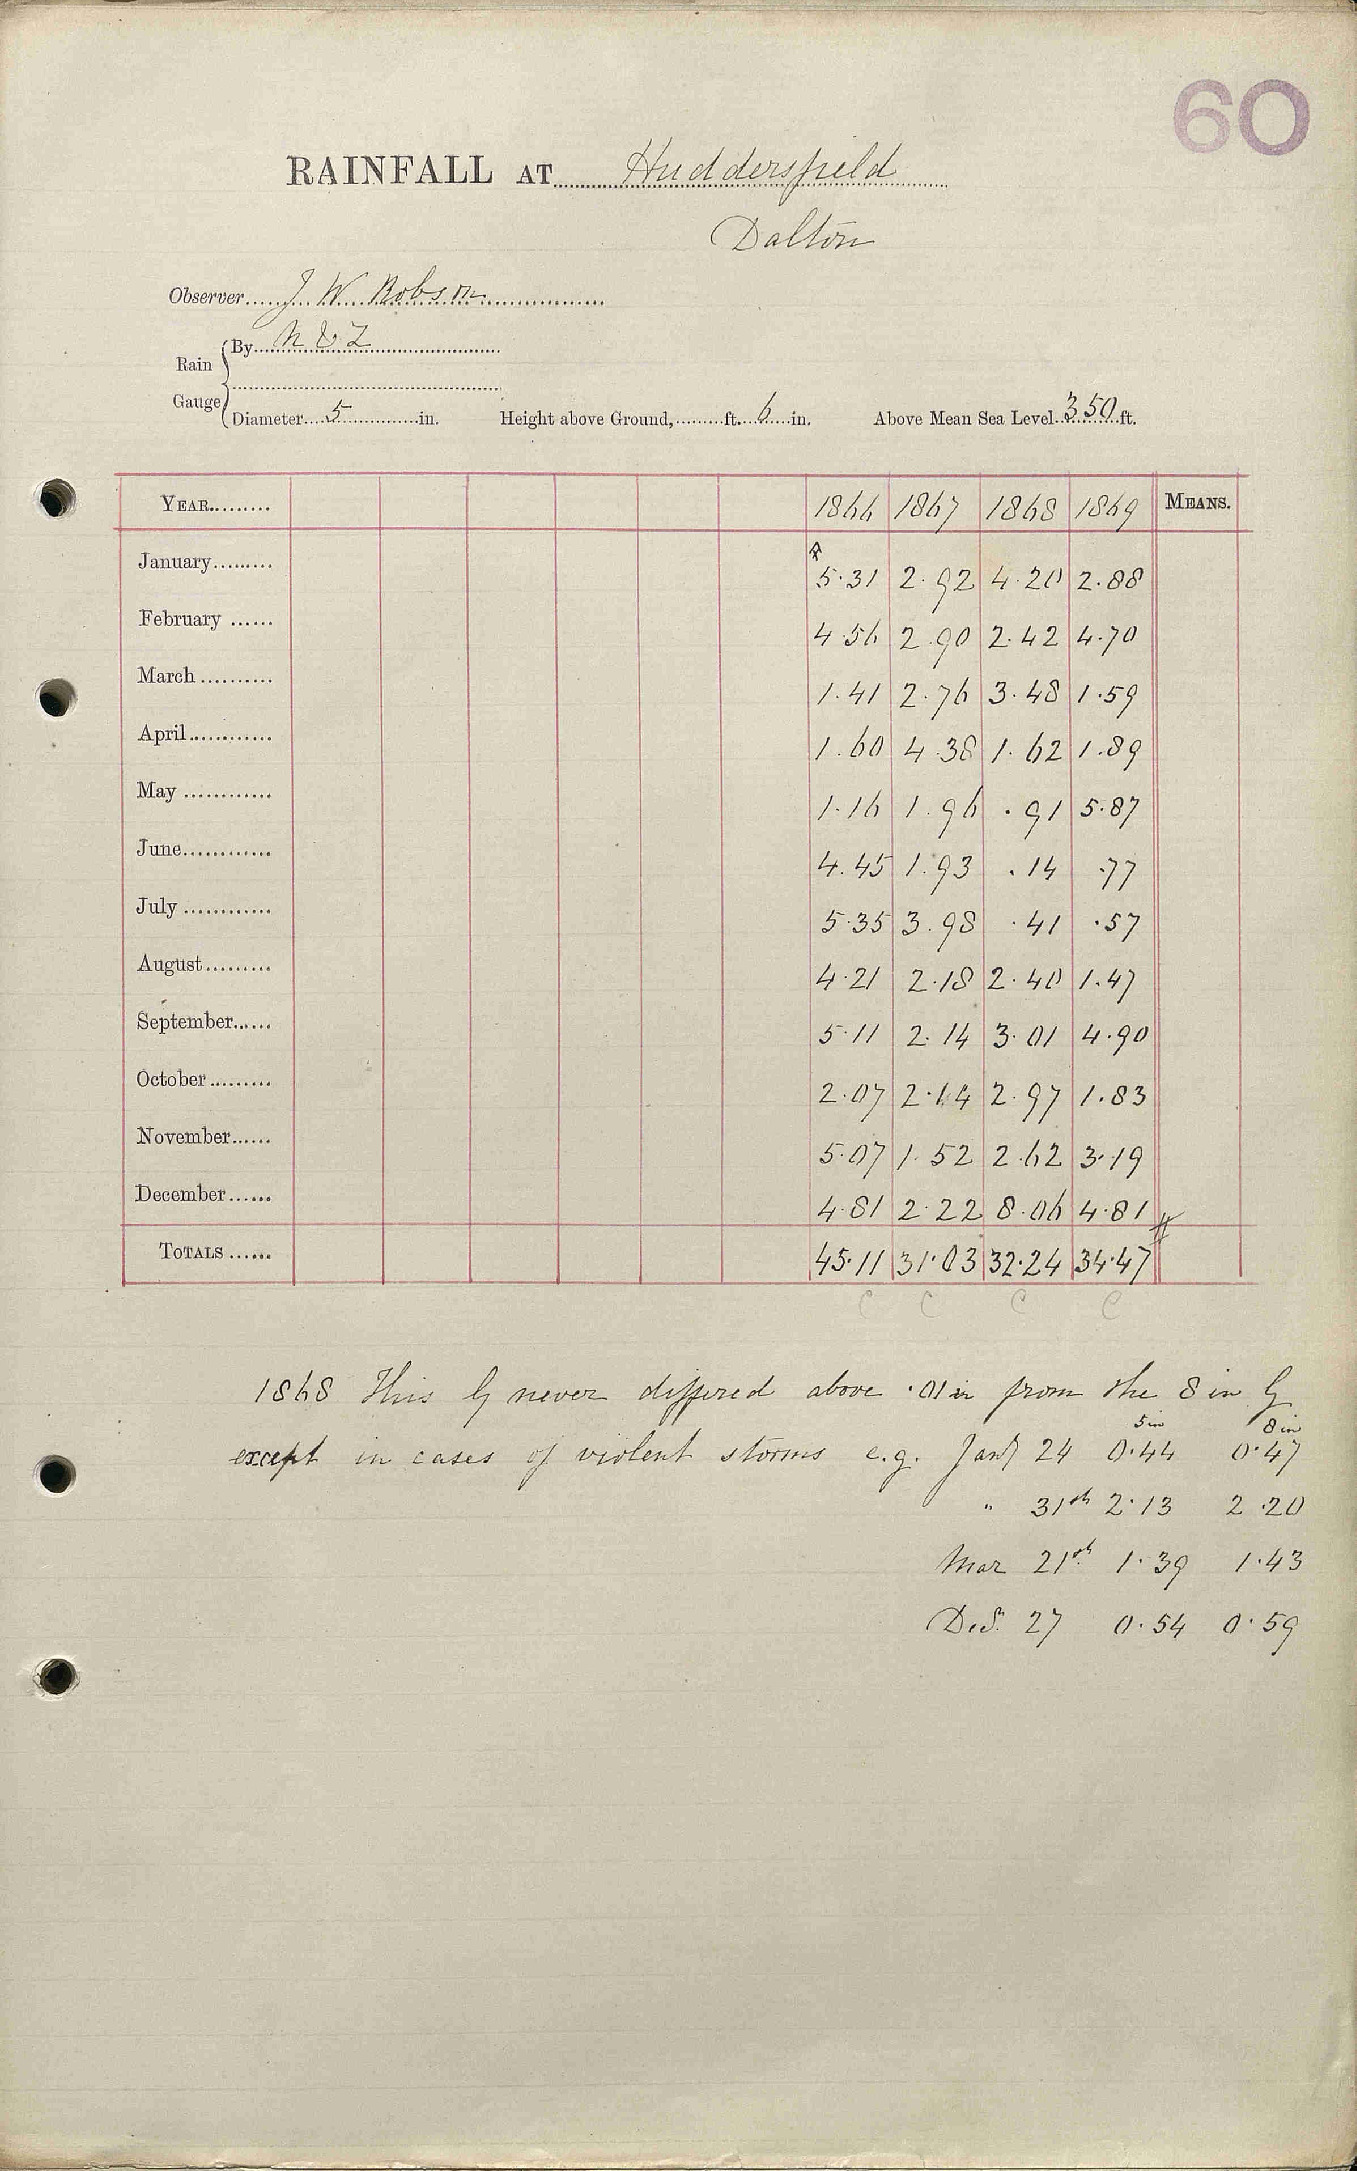 60
RAINFALL AT Huddersfield
Dalton
Observer J W Robson
Rain Gauge
By N & Z
Diameter 5 in. Height above Ground, ft. 6 in. Above Mean Sea Level 350 ft.
YEAR 1866 1867 1868 1869 MEANS.
January 5.31 2.92 4.20 2.88
February 4.56 2.90 2.42 4.70
March 1.41 2.76 3.48 1.59
April 1.60 4.38 1.62 1.89
May 1.16 1.96 .91 5.87
June 4.45 1.93 .14 .77
July 5.35 3.98 .41 .57
August 4.21 2.18 2.40 1.47
September 5.11 2.14 3.01 4.90
October 2.07 2.14 2.97 1.83
November 5.07 1.52 2.62 3.19
December 4.81 2.22 8.06 4.81
TOTALS 45.11 31.03 32.24 34.47
C C C C
1868 This G never differed above .01 in from the 8 in G
5 in 8 in
except in cases of violent storms e.g. Jany 24 0.44 0.47
" 31st 2.13 2.20
Mar 21st 1.39 1.43
Dec. 27 0.54 0.59